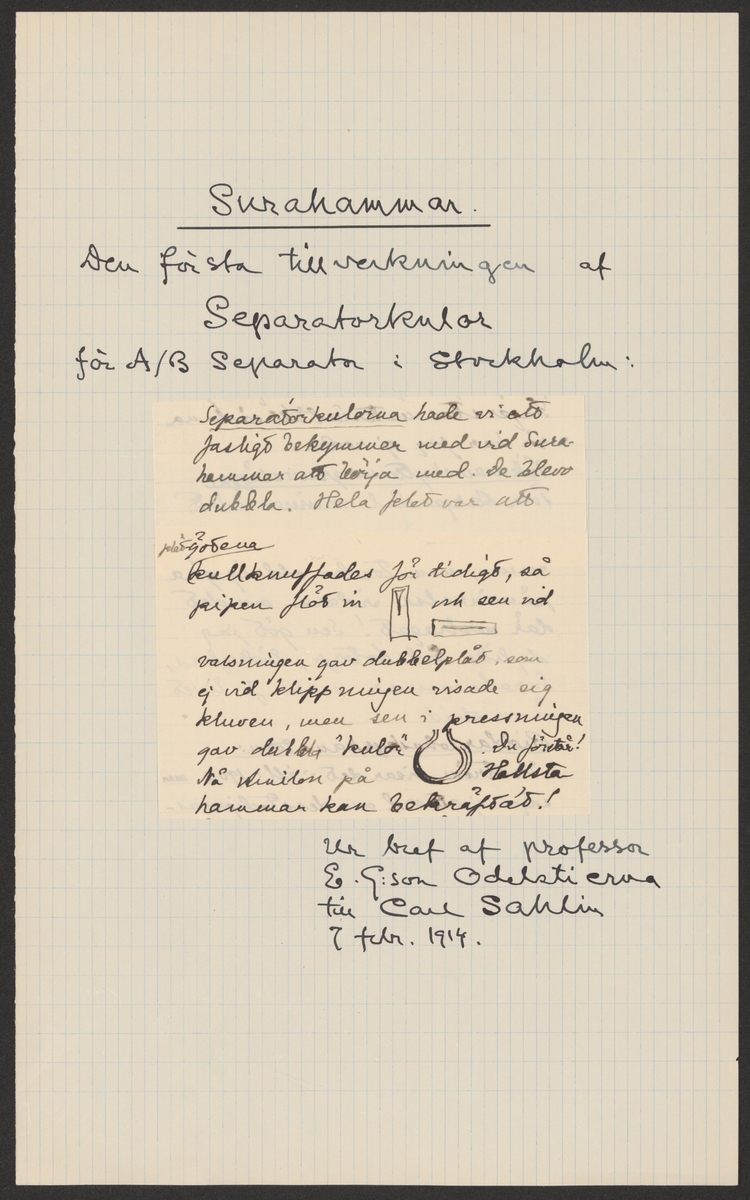 Surahammar.
Den första tillverkningen af
Separatorkulor
för A/B Separator i Stockholm:
Separatorkulorna hade vi ett
fasligt bekymmer med vid Sura-
hammar att börja med. De blevo
dubbla. Hela felet var att
götena
kullknuffades för tidigt, så
pipen flöt in och sen vid
valsningen gav dubbelplåt, som
ej vid klippningen visade sig
kluven, men sen i pressningen
gav dubbla "kulor". Du förstår!
Nå på Hallsta
hammar kan bekräfta't!
Ur bref af professor
E. G:son Odelstierna
till Carl Sahlin
7 febr. 1914.